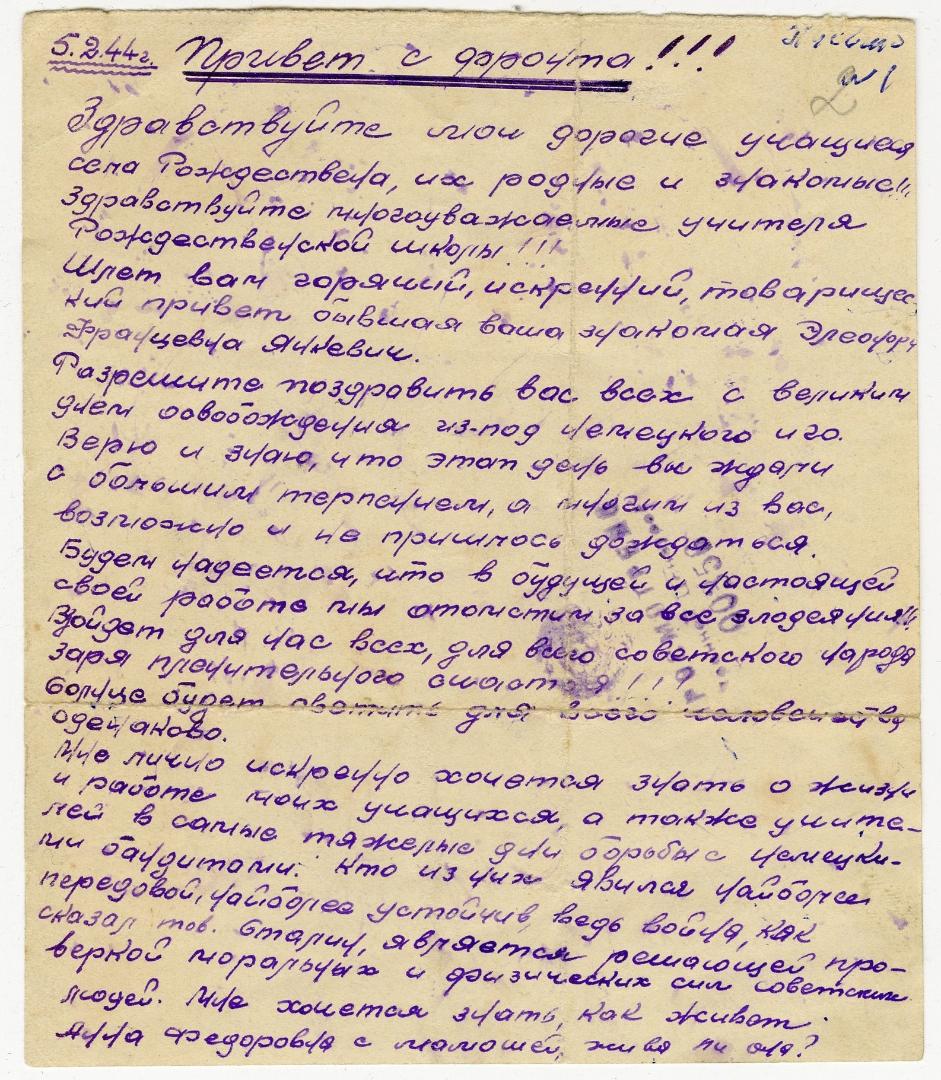 5.2.44г. Привет с фронта!!!
Письмо
№1
2
Здравствуйте мои дорогие учащиеся
села Рождествена, их родные и знакомые!!!
Здравствуйте многоуважаемые учителя
Рождественской школы!!!
Шлет вам горячий, искренний, товарищес-
кий привет бывшая ваша знакомая Элеонора
Францевна Янкевич.
Разрешите поздравить вас всех с великим
днем освобождения из-под немецкого иго.
Верю и знаю, что этот день вы ждали
с большим терпением, а многим из вас,
возможно и не пришлось дождаться.
Будем надеется, что в будущей и настоящей
своей работе мы отомстим за все злодеяния!!!
Взойдет для нас всех, для всего советского народа
заря пленительного счастья!!!
Солнце будет светить для всего человечества
одейнаково.
Мне лично искренно хочется знать о жизни
и работе моих учащихся, а также учите-
лей в самые тяжелые дни борьбы с немецки-
ми бандитами. Кто из них явился наиболее
передовой, наиболее устойчив, ведь война, как
сказал тов. Сталин, является решающей про-
веркой моральных и физических сил советских
людей. Мне хочется знать, как живет
Анна Федоровна с мамошей, жива ли она?